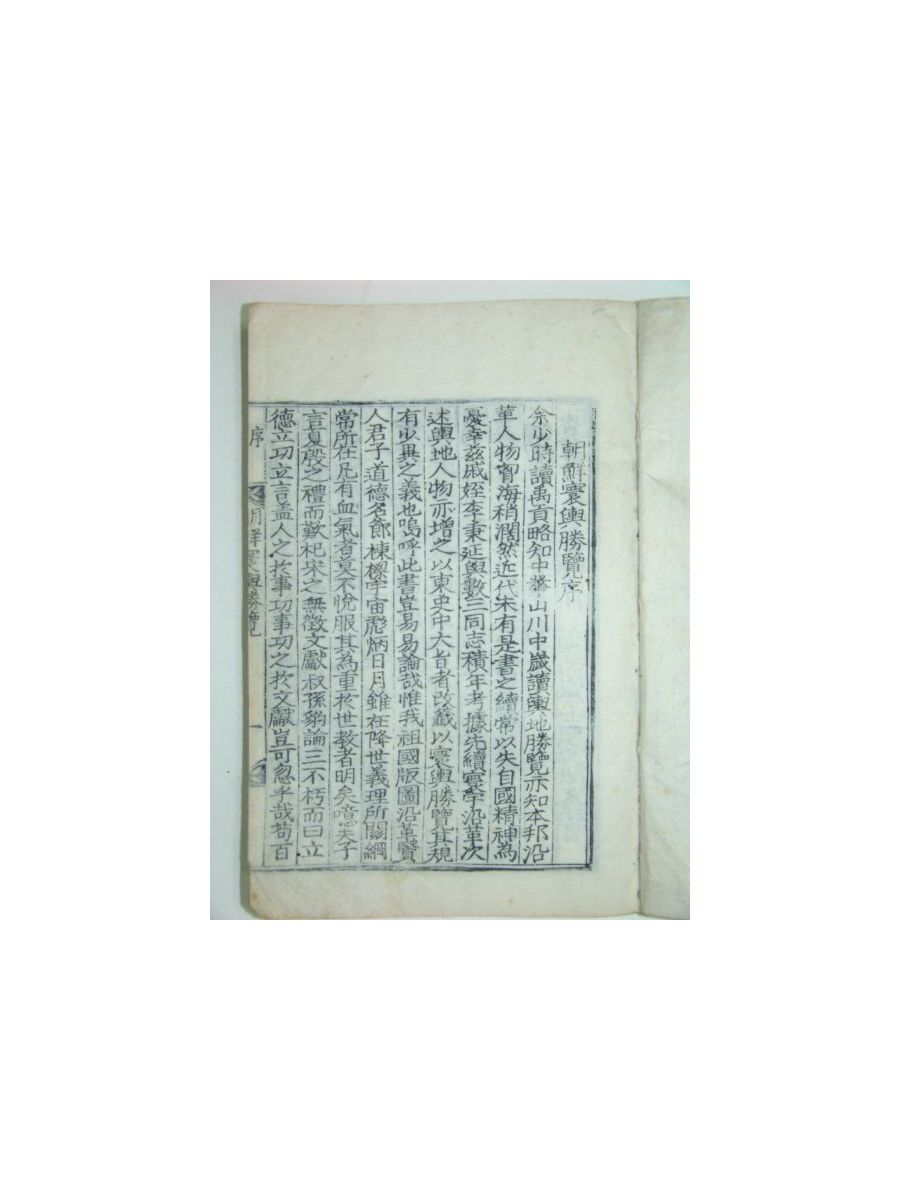 朝鮮寰輿勝覽序
余少時讀禹貢略知中華山川中歲讀輿地勝覽亦知本邦沿
革人物甯海稍濶然近代未有是書之續常以失自國精神為
憂幸茲戚姪李秉延與數三同志積年考據先續寰宇沿革次
述輿地人物亦增之以東史中大旨者改籤以寰輿勝覽其規
有少異之義也嗚呼此書豈易易論哉惟我祖國版圖沿革賢
人君子道德名節棟樑宇宙彪炳日月雖在降世義理所關綱
常所在凡有血氣者莫不悅服其為重於世教者明矣噫夫子
言夏殷之禮而歎杞宋之無徵文獻叔孫豹論三不朽而曰立
德立功立言盖人之於事功事功之於文獻豈可忽乎哉苟百
序
朝鮮寰輿勝覽
一